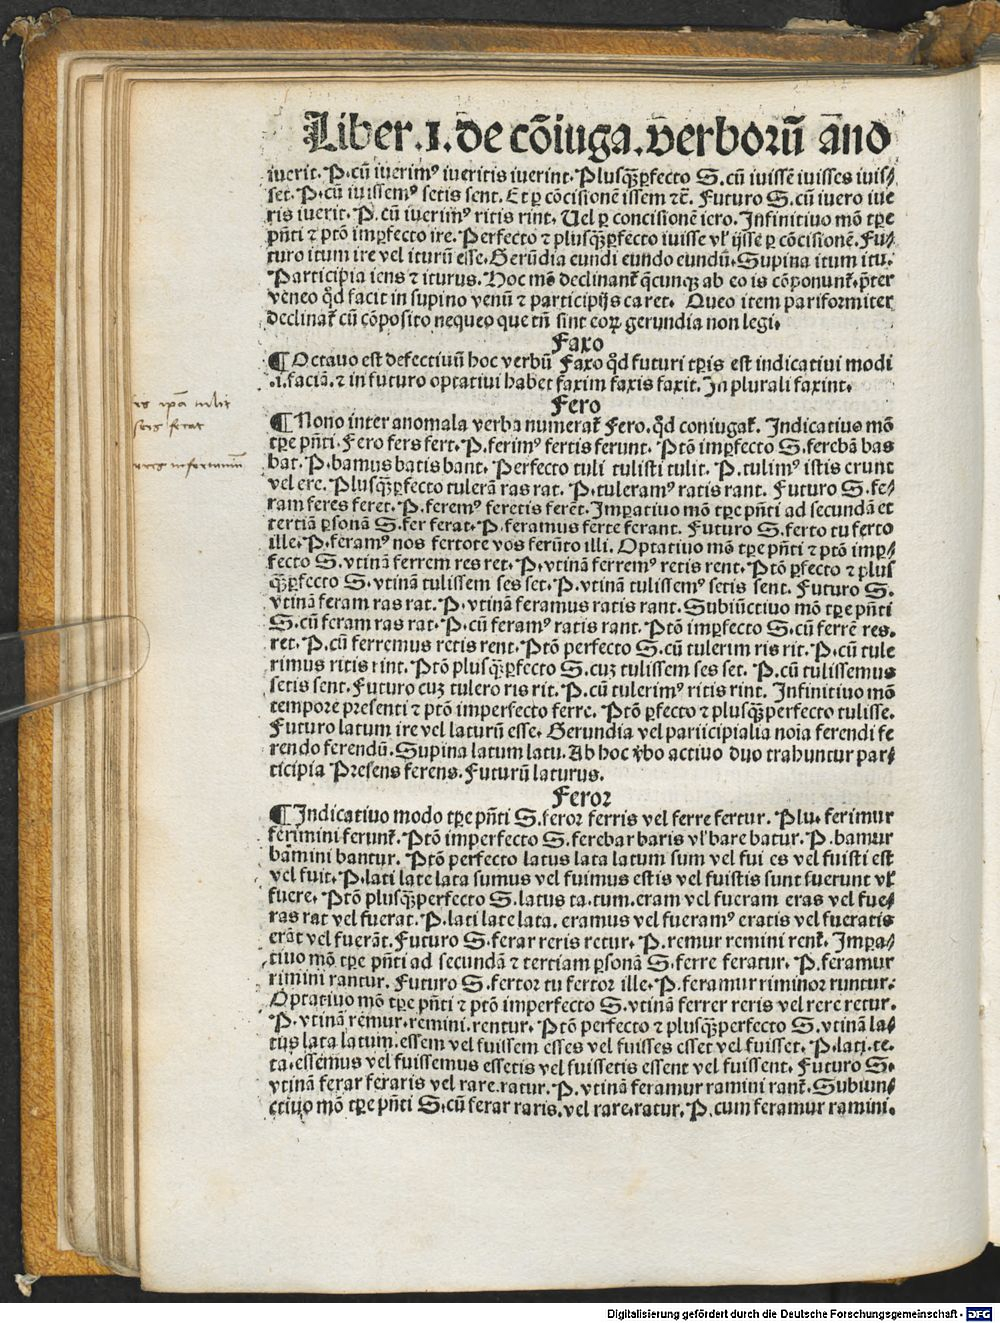 Liber.I.de cōiuga.verborū āno
iuerit. P. cū iuerimꝰ iueritis iuerint. Plusq̄ꝑfecto S. cū iuissē iuisses iuis⸗
set. P. cū iuissemꝰ setis sent. Et ꝑ cōcisionē issem ⁊c̄. Futuro S. cū iuero iue
ris iuerit. P. cū iuerimꝰ ritis rint. Uel ꝑ concisionē iero. Infinitiuo mō tꝑe
pn̄ti ⁊ ptō imꝑfecto ire. Perfecto ⁊ plusq̄ꝑfecto iuisse vl' ijsse ꝑ cōcisionē. Fu⸗
turo itum ire vel iturū esse. Gerūdia eundi eundo eundū. Supina itum itu.
Participia iens ⁊ iturus. Hoc mō declinanť q̄cunqꝫ ab eo is cōponunť. p̄ter
veneo qd̄ facit in supino venū ⁊ participijs caret. Queo item pariformiter
declinať cū cōposito nequeo que tn̄ sint coꝝ gerundia non legi.
Faxo
¶ Octauo est defectiuū hoc verbū Faxo qd̄ futuri tꝑis est indicatiui modi
.i. faciā. ⁊ in futuro optatiui habet faxim faxis faxit. In plurali faxint.
Fero
¶ Nono inter anomala verba numerať Fero. qd̄ coniugať. Indicatiuo mō
tꝑe pn̄ti. Fero fers fert. P. ferimꝰ fertis ferunt. Ptō imꝑfecto S. ferebā bas
bat. P. bamus batis bant. Perfecto tuli tulisti tulit. P. tulimꝰ istis erunt
vel ere. Plusq̄ꝑfecto tulerā ras rat. P. tuleramꝰ ratis rant. Futuro S. fe⸗
ram feres feret. P. feremꝰ feretis ferēt. Imꝑatiuo mō tꝑe pn̄ti ad secundā et
tertiā ꝑsonā S. fer ferat. P. feramus ferte ferant. Futuro S. ferto tu ferto
ille. P. feramꝰ nos fertote vos ferūto illi. Optatiuo mō tꝑe pn̄ti ⁊ ptō imꝑ⸗
fecto S. vtinā ferrem res ret. P. vtinā ferremꝰ retis rent. Ptō ꝑfecto ⁊ plus
q̄ꝑfecto S. vtinā tulissem ses set. P. vtinā tulissemꝰ setis sent. Futuro S.
vtinā feram ras rat. P. vtinā feramus ratis rant. Subiūctiuo mō tꝑe pn̄ti
S. cū feram ras rat. P. cū feramꝰ ratis rant. Ptō imꝑfecto S. cū ferrē res.
ret. P. cū ferremus retis rent. Ptō perfecto S. cū tulerim ris rit. P. cū tule
rimus ritis rint. Ptō plusq̄ꝑfecto S. cuꝫ tulissem ses set. P. cū tulissemus
setis sent. Futuro cuꝫ tulero ris rit. P. cū tulerimꝰ ritis rint. Infinitiuo mō
tempore presenti ⁊ ptō imperfecto ferre. Ptō ꝑfecto ⁊ plusq̄perfecto tulisse.
Futuro latum ire vel laturū esse. Gerundia vel participialia noīa ferendi fe
rendo ferendū. Supina latum latu. Ab hoc v̓bo actiuo duo trahuntur par⸗
ticipia Presens ferens. Futurū laturus.
Feror
¶ Indicatiuo modo tꝑe pn̄ti S. feror ferris vel ferre fertur. Plu. ferimur
ferimini ferunť. Ptō imperfecto S. ferebar baris vl' bare batur. P. bamur
bamini bantur. Ptō perfecto latus lata latum sum vel fui es vel fuisti est
vel fuit. P. lati late lata sumus vel fuimus estis vel fuistis sunt fuerunt vl'
fuere. Ptō plusq̄perfecto S. latus ta. tum. eram vel fueram eras vel fue⸗
ras rat vel fuerat. P. lati late lata. eramus vel fueramꝰ eratis vel fueratis
erāt vel fuerāt. Futuro S. ferar reris retur. P. remur remini renť. Imꝑa⸗
tiuo mō tꝑe pn̄ti ad secundā ⁊ tertiam ꝑsonā S. ferre feratur. P. feramur
rimini rantur. Futuro S. fertor tu fertor ille. P. feramur riminor runtur.
Optatiuo mō tꝑe pn̄ti ⁊ ptō imperfecto S. vtinā ferrer reris vel rere retur.
P. vtinā remur. remini. rentur. Ptō perfecto ⁊ plusq̄perfecto S. vtinā la⸗
tus lata latum. essem vel fuissem esses vel fuisses esset vel fuisset. P. lati. te.
ta. essemus vel fuissemus essetis vel fuissetis essent vel fuissent. Futuro S.
vtinā ferar feraris vel rare. ratur. P. vtinā feramur ramini ranť. Subiun⸗
ctiuo mō tꝑe pn̄ti S. cū ferar raris. vel rare. ratur. P. cum feramur ramini.
Digitalisierung gefördert durch die Deutsche Forschungsgemeinschaft - DFG